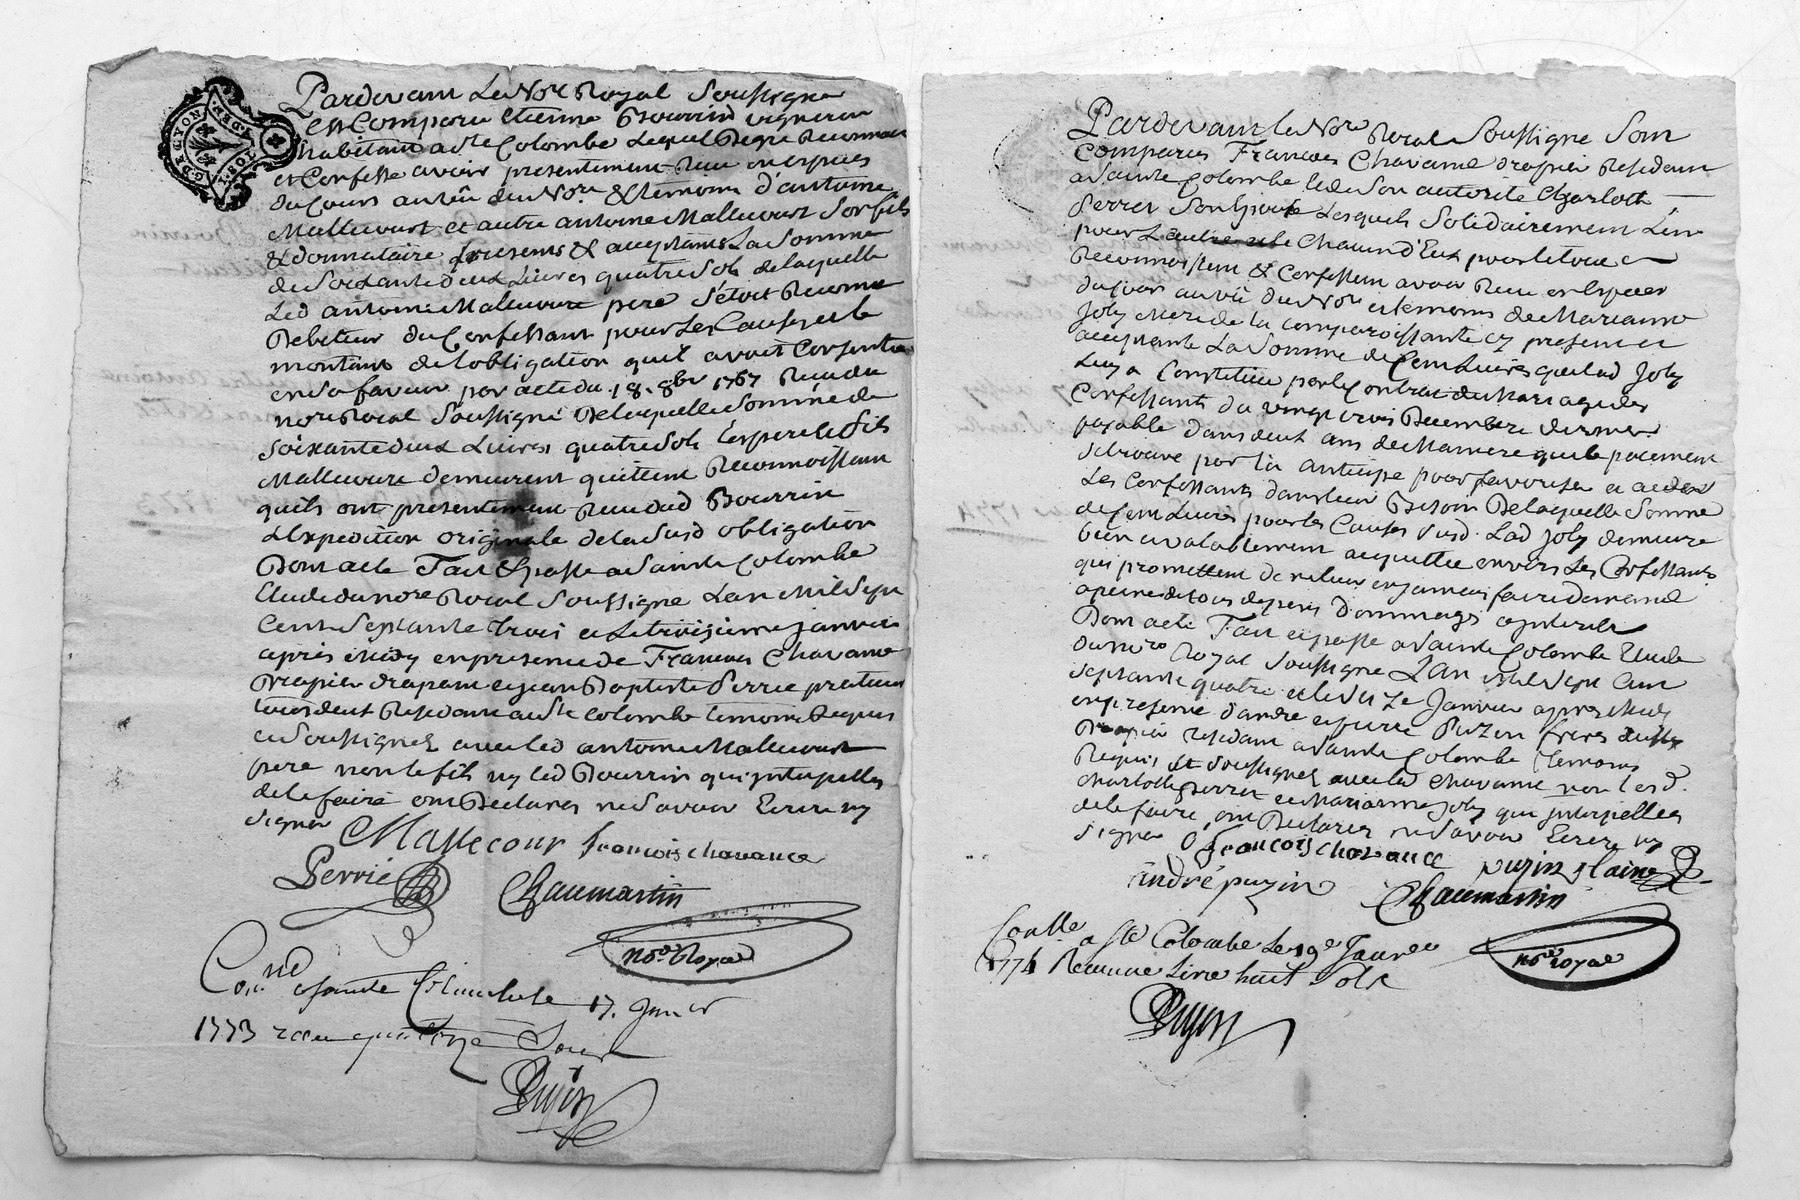 G. DE LYON
Pardevant Le Nore Royal Soussigné
Est Comparu Etienne Bourrin vigneron
habitant a Ste Colombe Lequel De gré Reconnoit
et Confesse avoir presentement Reçu en especes
du Cours au vû du Nore & temoins d'antoine
Mallecourt et autre antoine Mallecourt Son fils
& donnataire presents & acceptants La Somme
de Soixante deux Livres quatre Sols de laquelle
Led antoine Mallecourt pere S'étoit Reconnu
Debiteur du Confessant pour Les Causes et le
montant de L'obligation qu'il avoit Consentie
en Sa faveur par acte du 18. 8bre 1767 Reçu du
nore Roial Soussigné De laquelle Somme de
Soixante deux Livres quatre Sols Les pere et fils
Mallecourt demeurent quittes Reconnoissant
qu'ils ont presentement Reçu dud Bourrin
L'Expedition originale de la Susd obligation
Dont acte Fait & passé a Sainte Colombe
Etude du nore Roial Soussigné L'an Mil Sept
Cent Septante Trois et Le troisieme janvier
après Midy en presence de François Chavance
Drapier drapant et jean Baptiste Perrie praticien
tous deux Residant aud Ste Colombe temoins Requis
et Soussignés avec led antoine Mallecourt
pere non le fils ny led Bourrin qui interpellés
de le faire ont Declarés ne Savoir Ecrire ny
signer
Mallecour francois chavance
Perrie Chaumartin
nore Royal
Con. a sainte Colombe le 17. Janvier
1773 recu quatorze Sous
Pardevant le Nore Roial Soussigné Sont
Comparus François Chavance drapier Residant
a Sainte Colombe & de Son autorité Charlotte
Perret Son Epouse Lesquels Solidairement L'un
pour L'autre Chacun d'Eux pour le tout
Reconnoissent & Confessent avoir Reçu en Especes
du Cours au vû du Nore et temoins de Marianne
Joly Mere de la comparoissante cy presente et
acceptante La Somme de Cent Livres que lad Joly
Luy a Constitué par le Contrat de Mariage des
Confessants du vingt trois Decembre dernier
payable dans deux ans de Maniere que le paiement
Se trouve par là anticipé pour favoriser et aider
Les Confessants dans leur Besoin De laquelle Somme
de Cent Livres pour les Causes Susd. Lad Joly demeure
bien et valablement acquittée envers Les Confessants
qui promettent de ne lui en jamais faire Demande
a peine de tous depens Dommages
Dont acte Fait et passé a Sainte Colombe Etude
du nore Royal Soussigné L'an Mil Sept Cent
Septante quatre et le Janvier apres Midy
en presence d'andré et pierre Puzin freres
Drapier residant a Sainte Colombe temoins
Requis Et Soussignés avec led Chavance non lesd.
Charlotte Perret et Marianne Joly qui interpellées
de le faire ont Declarés ne Savoir Ecrire ny
Signer
francois chavance puzin Laine
andré puzin Chaumartin
nore royal
Conlle a Ste Colombe Le 19e Janvr
1774 Recu une livre huit Sols